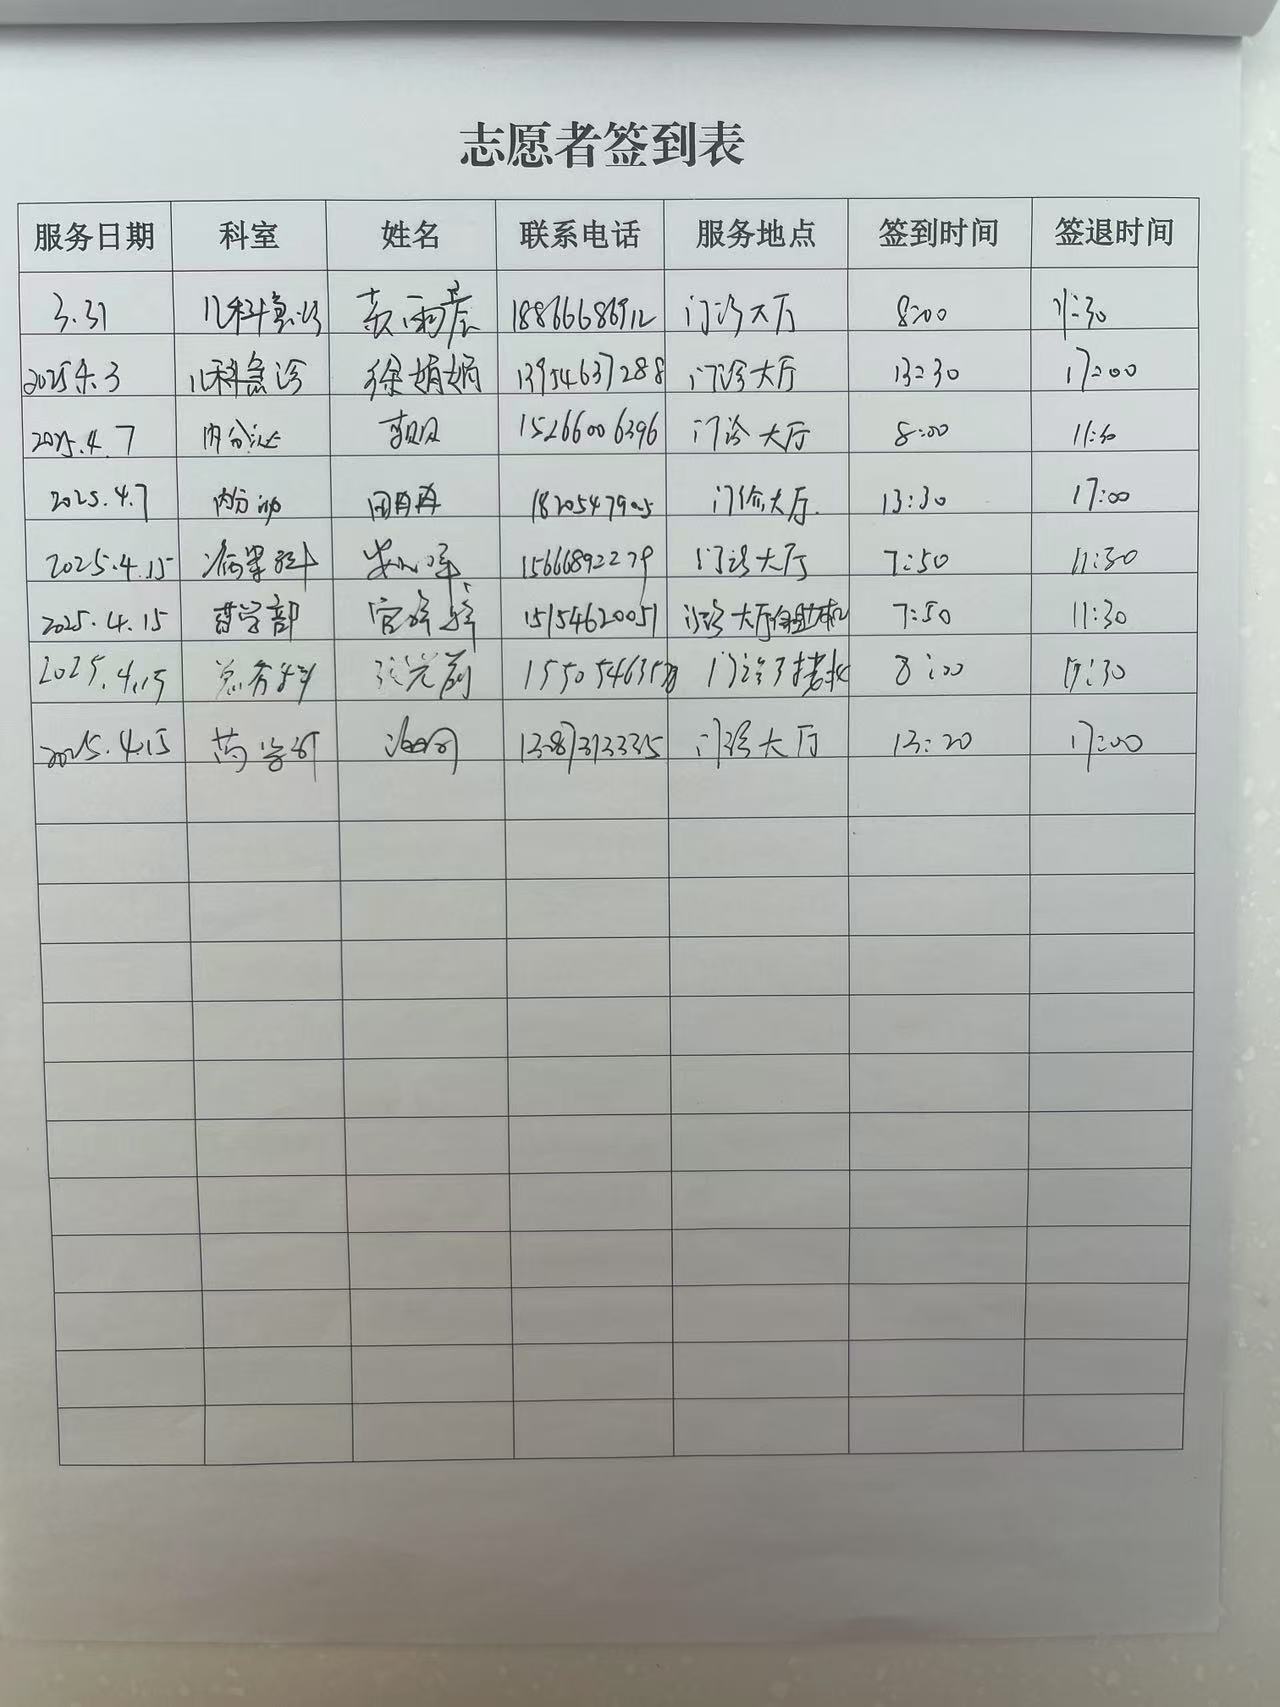 志愿者签到表
服务日期 科室 姓名 联系电话 服务地点 签到时间 签退时间
3.31 儿科急诊 雨 门诊大厅 8:00 11:30
2025.4.3 儿科急诊 徐娟娟 13954637288 门诊大厅 13:30 17:00
2025.4.7 内分泌 15266006396 门诊大厅 8:00 11:30
2025.4.7 内分泌 门诊大厅 13:30 17:00
2025.4.15 病案科 15666892279 门诊大厅 7:50 11:30
2025.4.15 药学部 宫 15154620051 门诊大厅自助机 7:50 11:30
2025.4.15 总务科 张光 8:00
2025.4.15 药学部 门诊大厅 13:20 17:00